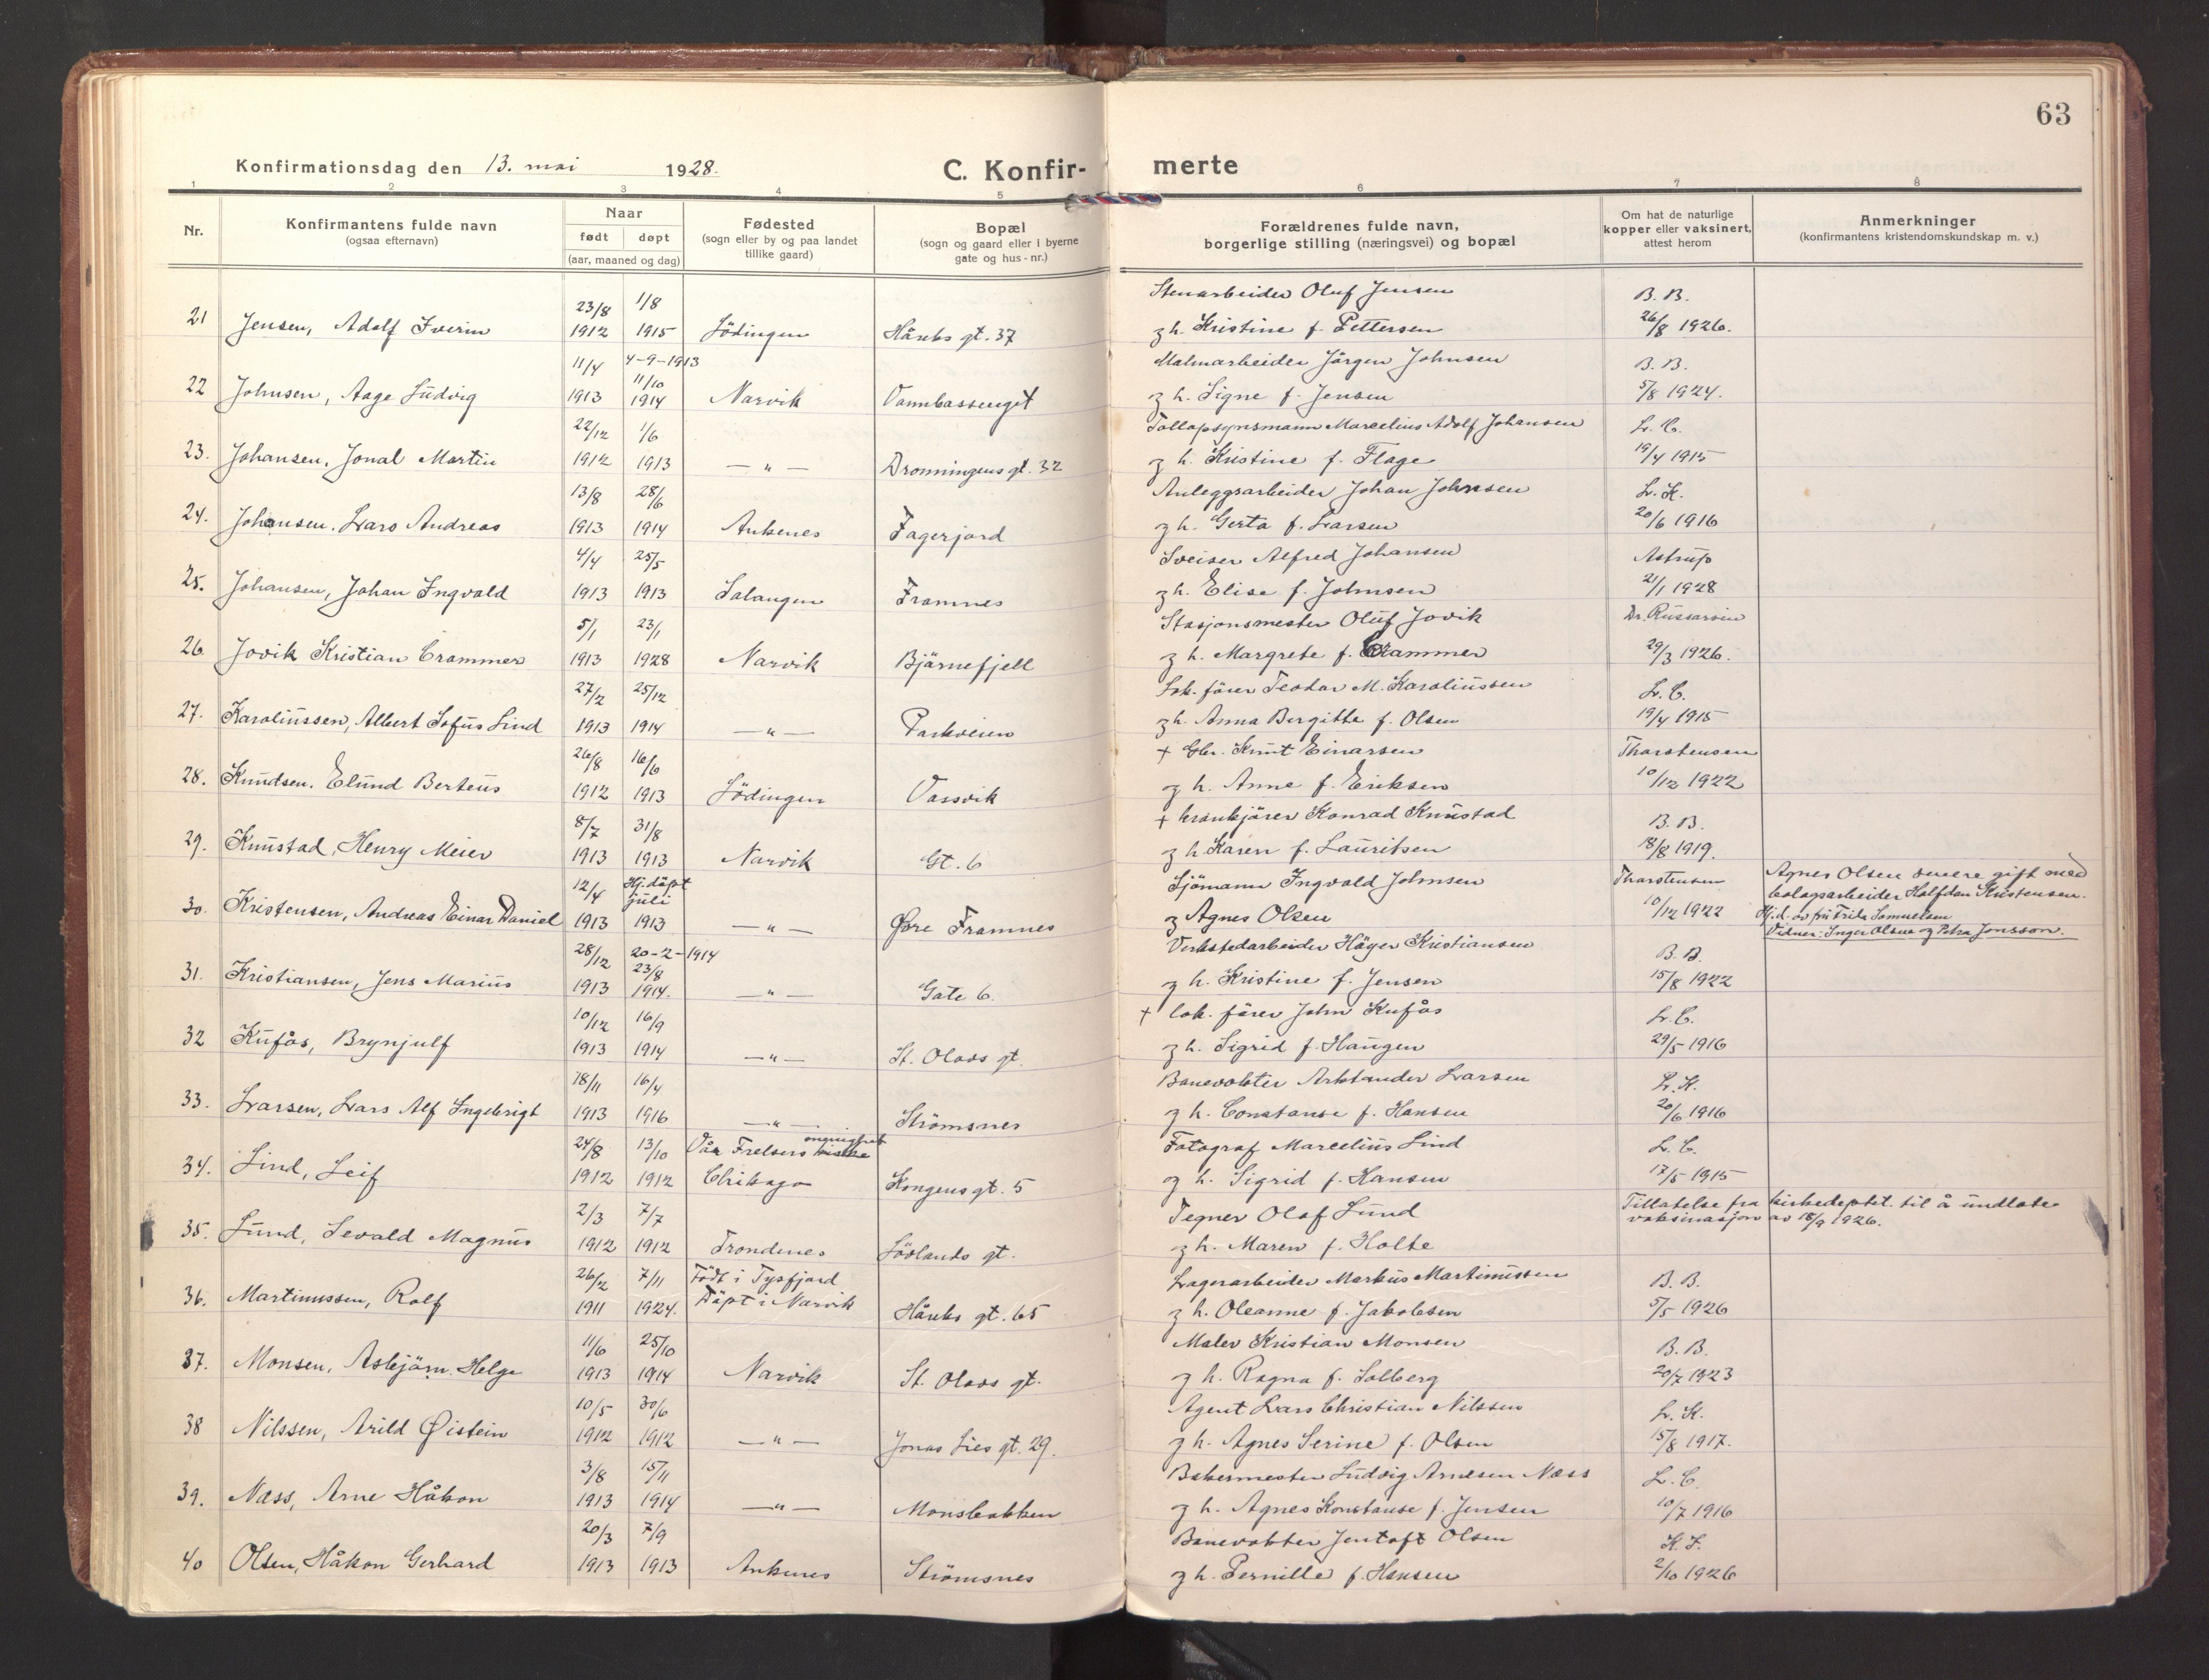 63
Konfirmationsdag den 13. mai 1928. C. Konfir- merte
1 2 3 4 5 6 7 8
Nr. Konfirmantens fulde navn (ogsaa efternavn) Naar født døpt (aar, maaned og dag) Fødested (sogn eller by og paa landet tillike gaard) Bopæl (sogn og gaard eller i byerne gate og hus-nr.) Forældrenes fulde navn, borgerlige stilling (næringsvei) og bopæl Om hat de naturlige kopper eller vaksinert, attest herom Anmerkninger (konfirmantens kristendomskundskap m. v.)
23/8 1/8 Stenarbeider Oluf Jensen B. B.
21 Jensen, Adolf Iverin 1912 1915 Lödingen Håreks gt. 37 og h. Kristine f. Pettersen 26/8 1926.
11/4 4-9-1913 11/10 Malmarbeider Jörgen Johnsen B. B.
22 Johnsen, Aage Ludvig 1913 1914 Narvik Vannbassenget og h. Signe f. Jensen 5/8 1924.
22/12 1/6 Tollopsynsmann Marcelius Adolf Johansen L. C.
23. Johansen, Jonal Martin 1912 1913 — " — Dronningens gt. 32 og h. Kristine f. Flage 19/4 1915
13/8 28/6 Anleggsarbeider Johan Johnsen L. K.
24. Johansen, Lars Andreas 1913 1914 Ankenes Fagerjord og h. Gerta f. Larsen 20/6 1916
4/4 25/5 Sveiser Alfred Johansen Astrup
25. Johansen, Johan Ingvald 1913 1913 Salangen Framnes og h. Elise f. Johnsen 21/1 1928
5/1 23/1 Stasjonsmester Oluf Jovik Dr.
26 Jovik Kristian Crammer 1913 1928 Narvik Bjärnefjell og h. Margrete f. Crammer 29/3 1926.
27/2 25/12 Lok. förer Teodor M. Karoliussen L. C.
27. Karoliussen, Albert Sofus Lind 1913 1914 — " — Parkveien og h. Anna Birgitte f. Olsen 19/4 1915
26/8 16/6 + Gbr. Knut Einarsen Thorstensen
28. Knudsen, Elund Berteus 1912 1913 Lödingen Vassvik og h. Anne f. Eriksen 10/12 1922
8/7 31/8 + krankjörer Konrad Knustad B. B.
29. Knustad, Henry Meier 1913 1913 Narvik Gt. 6 og h. Karen f. Lauritsen 18/8 1919.
12/4 Hj. döpt juli Sjömann Ingvald Johnsen Thorstensen Agnes Olsen senere gift med
bolagsarbeider Halfdan Kristensen.
30. Kristensen, Andreas Einar Daniel 1913 1913 — " — Øvre Framnes og Agnes Olsen 10/12 1922 Hj. d. av fru Frida Samuelsen
Vidner: Inger Olsen og Petra Jonsson.
28/12 20-2-1914 23/8 Verkstedarbeider Häger Kristiansen B. B.
31. Kristiansen, Jens Marius 1913 1914. — " — Gate 6. og h. Kristine f. Jensen 15/8 1922
10/12 16/9 + lok. förer John Kufås L. C.
32 Kufås, Brynjulf 1913 1914 — " — St. Olavs gt. og h. Sigrid f. Haugen 29/5 1916
18/11 16/4 Banevokter Arktander Larsen L. K.
33. Larsen, Lars Alf Ingebrigt 1913 1916 — " — Strömsnes og h. Constanse f. Hansen 20/6 1916
24/8 13/10 Vår Frelsers menighet kirke Fotograf Marcelius Lind L. C.
34. Lind, Leif 1912 1912 Chikago Kongens gt. 5 og h. Sigrid f. Hansen 17/5 1915
2/3 7/7 Tegner Olaf Lund Tillatelse fra kirkedeptet til å undlate
vaksinasjon av 18/9 1926.
35. Lund, Sevald Magnus 1912 1912 Trondenes Lövlands gt. og h. Maren f. Holte
26/2 7/11 Född i Tysfjord Lagerarbeider Markus Martinussen B. B.
36. Martinussen, Rolf 1911 1924. Döpt i Narvik Håreks gt. 65 og h. Oleanne f. Jakobsen 5/5 1926
11/6 25/10 Maler Kristian Monsen B. B.
37. Monsen, Asbjörn Helge 1913 1914 Narvik St. Olavs gt. og h. Ragna f. Solberg 20/7 1923
10/5 30/6 Agent Lars Christian Nilssen L. K.
38 Nilssen, Arild Øistein 1912 1912 — " — Jonas Lies gt. 29. og h. Agnes Serine f. Olsen 15/8 1917.
3/8 15/11 Bakermester Ludvig Arnesen Næss L. C.
39. Næss, Arne Håkon 1913 1914 — " — Monsbakken og h. Agnes Konstanse f. Jensen 10/7 1916
20/3 7/9 Banevokter Jentoft Olsen K. F.
40 Olsen, Håkon Gerhard 1913 1913 Ankenes Strömsnes og h. Pernille f. Hansen 2/10 1926